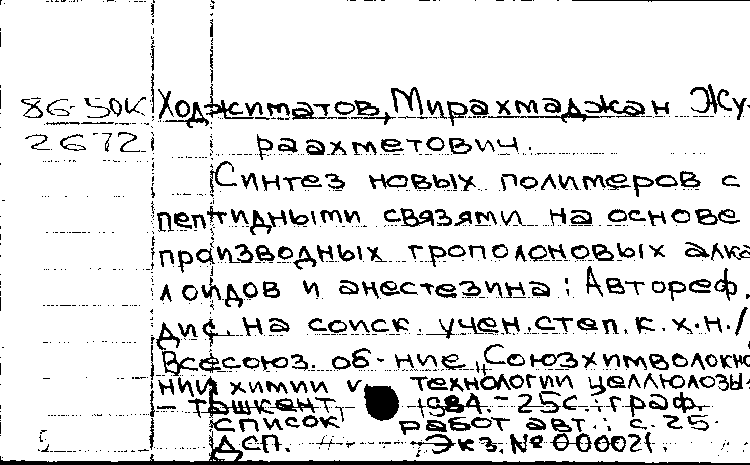 86-50К Ходжиматов, Мирахмаджан Жу-
2672 раахметович.
Синтез новых полимеров с
пептидными связями на основе
производных трополоновых алка
лоидов и анестезина: Автореф.
дис. на соиск. учен. степ. к.х.н./
Всесоюз. об-ние „Союзхимволокно
НИИ химии и технологии целлюлозы.
- Ташкент, 1984. - 25с.: граф.
список работ авт.: с. 25.
ДСП. Экз. № 000021.